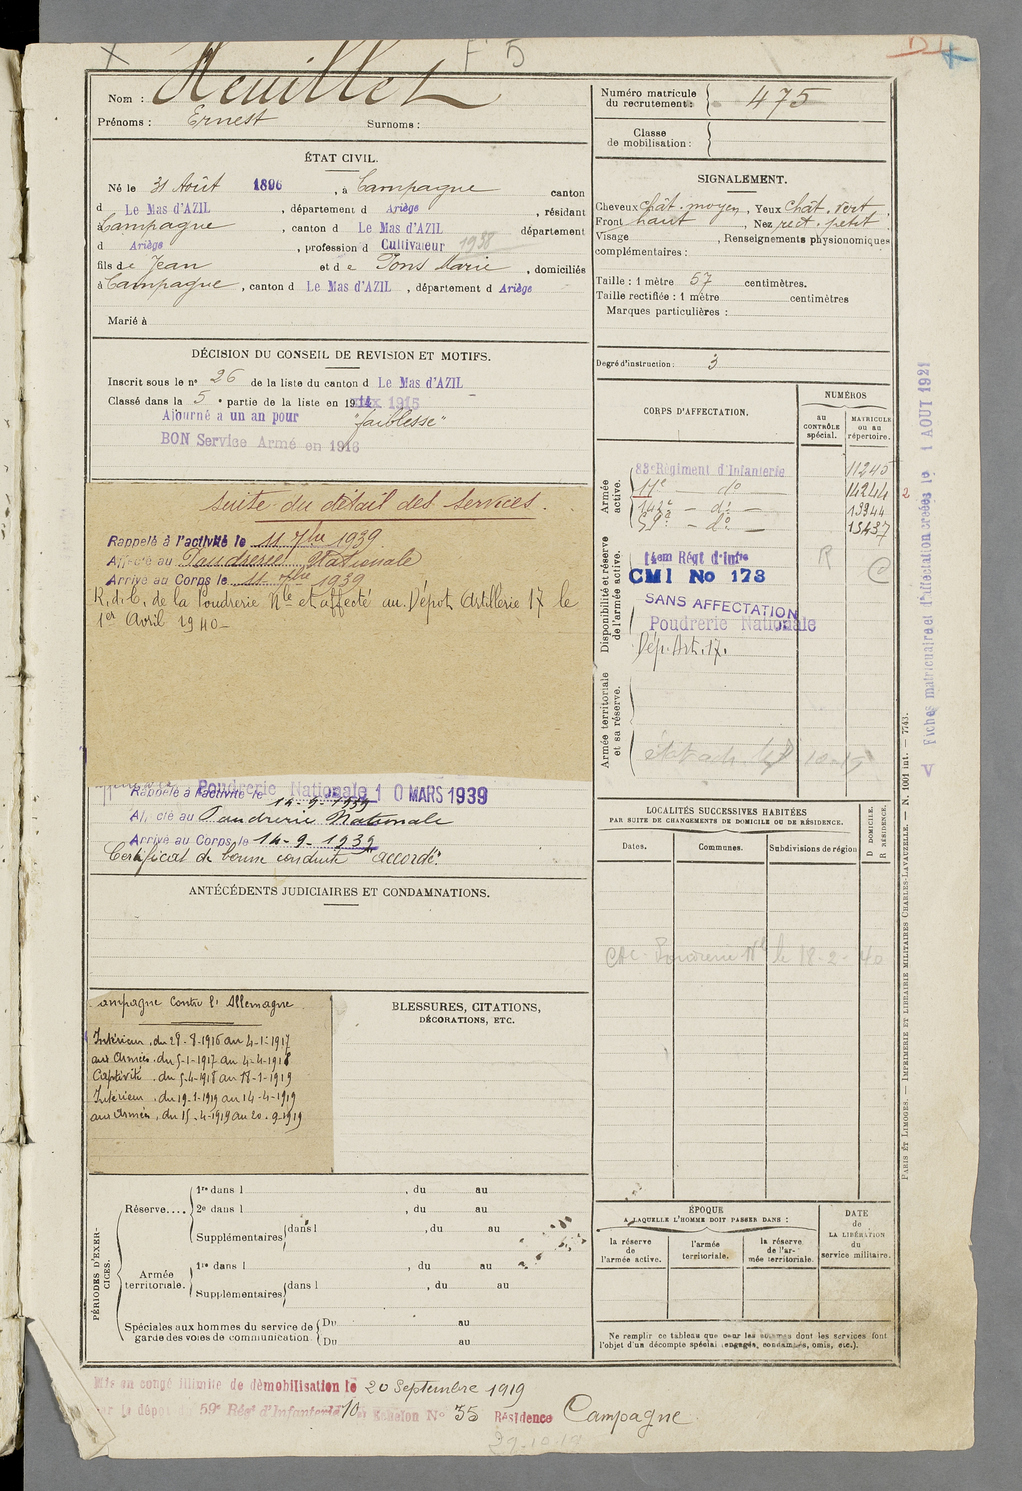 F 5
Nom : Heuillet
Prénoms : Ernest Surnoms :
ÉTAT CIVIL.
Né le 31 Août 1896, à Campagne canton
d Le Mas d'AZIL, département d Ariège, résidant
Campagne, canton d Le Mas d'AZIL département
d Ariège, profession d Cultivateur 1938
fils de Jean et de Pons Marie, domiciliés
à Campagne, canton d Le Mas d'AZIL, département d Ariège
Marié à
DÉCISION DU CONSEIL DE REVISION ET MOTIFS.
Inscrit sous le n° 26 de la liste du canton d Le Mas d'AZIL
Classé dans la 5e partie de la liste en 1915
Ajourné a un an pour "faiblesse"
BON Service Armé en 1916
Suite du détail des Services.
Rappelé à l'activité le 11 7bre 1939
Affecté au Poudrerie Nationale
Arrivé au Corps le 11 7bre 1939
R.d.C. de la Poudrerie Nle et affecté au Dépot Artillerie 17 le
1er Avril 1940
Poudrerie Nationale 10 MARS 1939
Rappelé à l'activité le 14-9-1939
Affecté au Poudrerie Nationale
Arrivé au Corps le 14-9-1939
Certificat de bonne conduite "accordé"
ANTÉCÉDENTS JUDICIAIRES ET CONDAMNATIONS.
Campagne contre l'Allemagne
Intérieur, du 28-8-1916 au 4-1-1917
aux Armées, du 5-1-1917 au 4-4-1918
Captivité, du 5-4-1918 au 18-1-1919
Intérieur, du 19-1-1919 au 14-4-1919
aux Armées, du 15-4-1919 au 20-9-1919
BLESSURES, CITATIONS,
DÉCORATIONS, ETC.
PÉRIODES D'EXERCICES.
Réserve....
1re dans l , du au
2e dans l , du au
Supplémentaires dans l , du au
Armée territoriale.
1re dans l , du au
Supplémentaires dans l , du au
Spéciales aux hommes du service de garde des voies de communication
Du au
Du au
Mis en congé illimité de démobilisation le 20 Septembre 1919
59e Régt d'Infanterie 10 er Echelon No 35 Résidence Campagne
Numéro matricule
du recrutement : 475
Classe
de mobilisation :
SIGNALEMENT.
Cheveux chât. moyen, Yeux chât. vert,
Front haut, Nez rect. petit
Visage , Renseignements physionomiques
complémentaires :
Taille : 1 mètre 57 centimètres.
Taille rectifiée : 1 mètre centimètres
Marques particulières :
Degré d'instruction : 3
CORPS D'AFFECTATION.
NUMÉROS
au CONTRÔLE spécial.
MATRICULE ou au répertoire.
Armée active.
83e Régiment d'Infanterie 11245
17e — do — 14244 2
142e — do — 13944
59e — do — 13437
Disponibilité et réserve de l'armée active.
14em Régt d'Infie
CMI No 173
SANS AFFECTATION
Poudrerie Nationale
Dép. Art. 17.
R C
Armée territoriale et sa réserve.
LOCALITÉS SUCCESSIVES HABITÉES
PAR SUITE DE CHANGEMENTS DE DOMICILE OU DE RÉSIDENCE.
Dates. Communes. Subdivisions de région
D DOMICILE.
R RÉSIDENCE.
Poudrerie Nle le 18-2-40
ÉPOQUE
A LAQUELLE L'HOMME DOIT PASSER DANS :
la réserve de l'armée active.
l'armée territoriale.
la réserve de l'armée territoriale.
DATE de LA LIBÉRATION du service militaire.
Ne remplir ce tableau que pour les hommes dont les services font
l'objet d'un décompte spécial (engagés, condamnés, omis, etc.).
Fiches matriculaire et d'affectation créées le 1 AOUT 1921
PARIS ET LIMOGES. — IMPRIMERIE ET LIBRAIRIE MILITAIRES CHARLES-LAVAUZELLE. — N. 1001 int. — 7743.